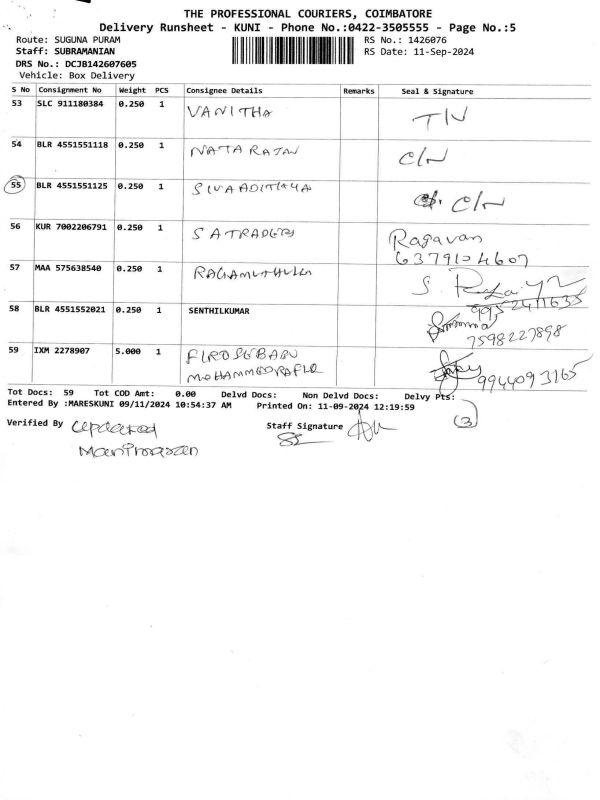 THE PROFESSIONAL COURIERS, COIMBATORE
Delivery Runsheet - KUNI - Phone No.:0422-3505555 - Page No.:5
Route: SUGUNA PURAM RS No.: 1426076
Staff: SUBRAMANIAN RS Date: 11-Sep-2024
DRS No.: DCJB142607605
Vehicle: Box Delivery
S No Consignment No Weight PCS Consignee Details Remarks Seal & Signature
53 SLC 911180384 0.250 1 VANITHA
54 BLR 4551551118 0.250 1 NATARAJAN C/N
55 BLR 4551551125 0.250 1 SIVAADITHYA C/N
56 KUR 7002206791 0.250 1 SATRADERS Ragavan
6379104607
57 MAA 575638540 0.250 1
58 BLR 4551552021 0.250 1 SENTHILKUMAR
7598227898
59 IXM 2278907 5.000 1 FIRDSEBANU
MOHAMMEDRAFIQ 9944093165
Tot Docs: 59 Tot COD Amt: 0.00 Delvd Docs: Non Delvd Docs: Delvy Pts:
Entered By :MARESKUNI 09/11/2024 10:54:37 AM Printed On: 11-09-2024 12:19:59
Verified By updated Staff Signature (3)
Manimaran